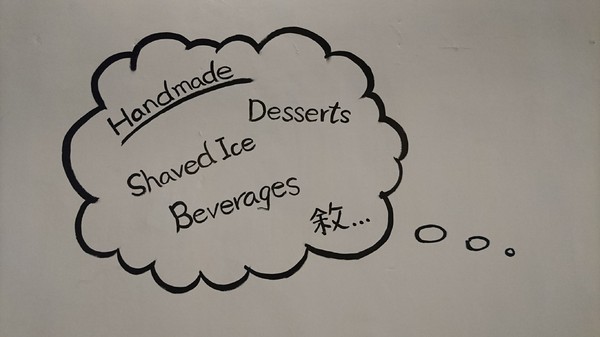 Handmade
Desserts
Shaved Ice
Beverages
敘...